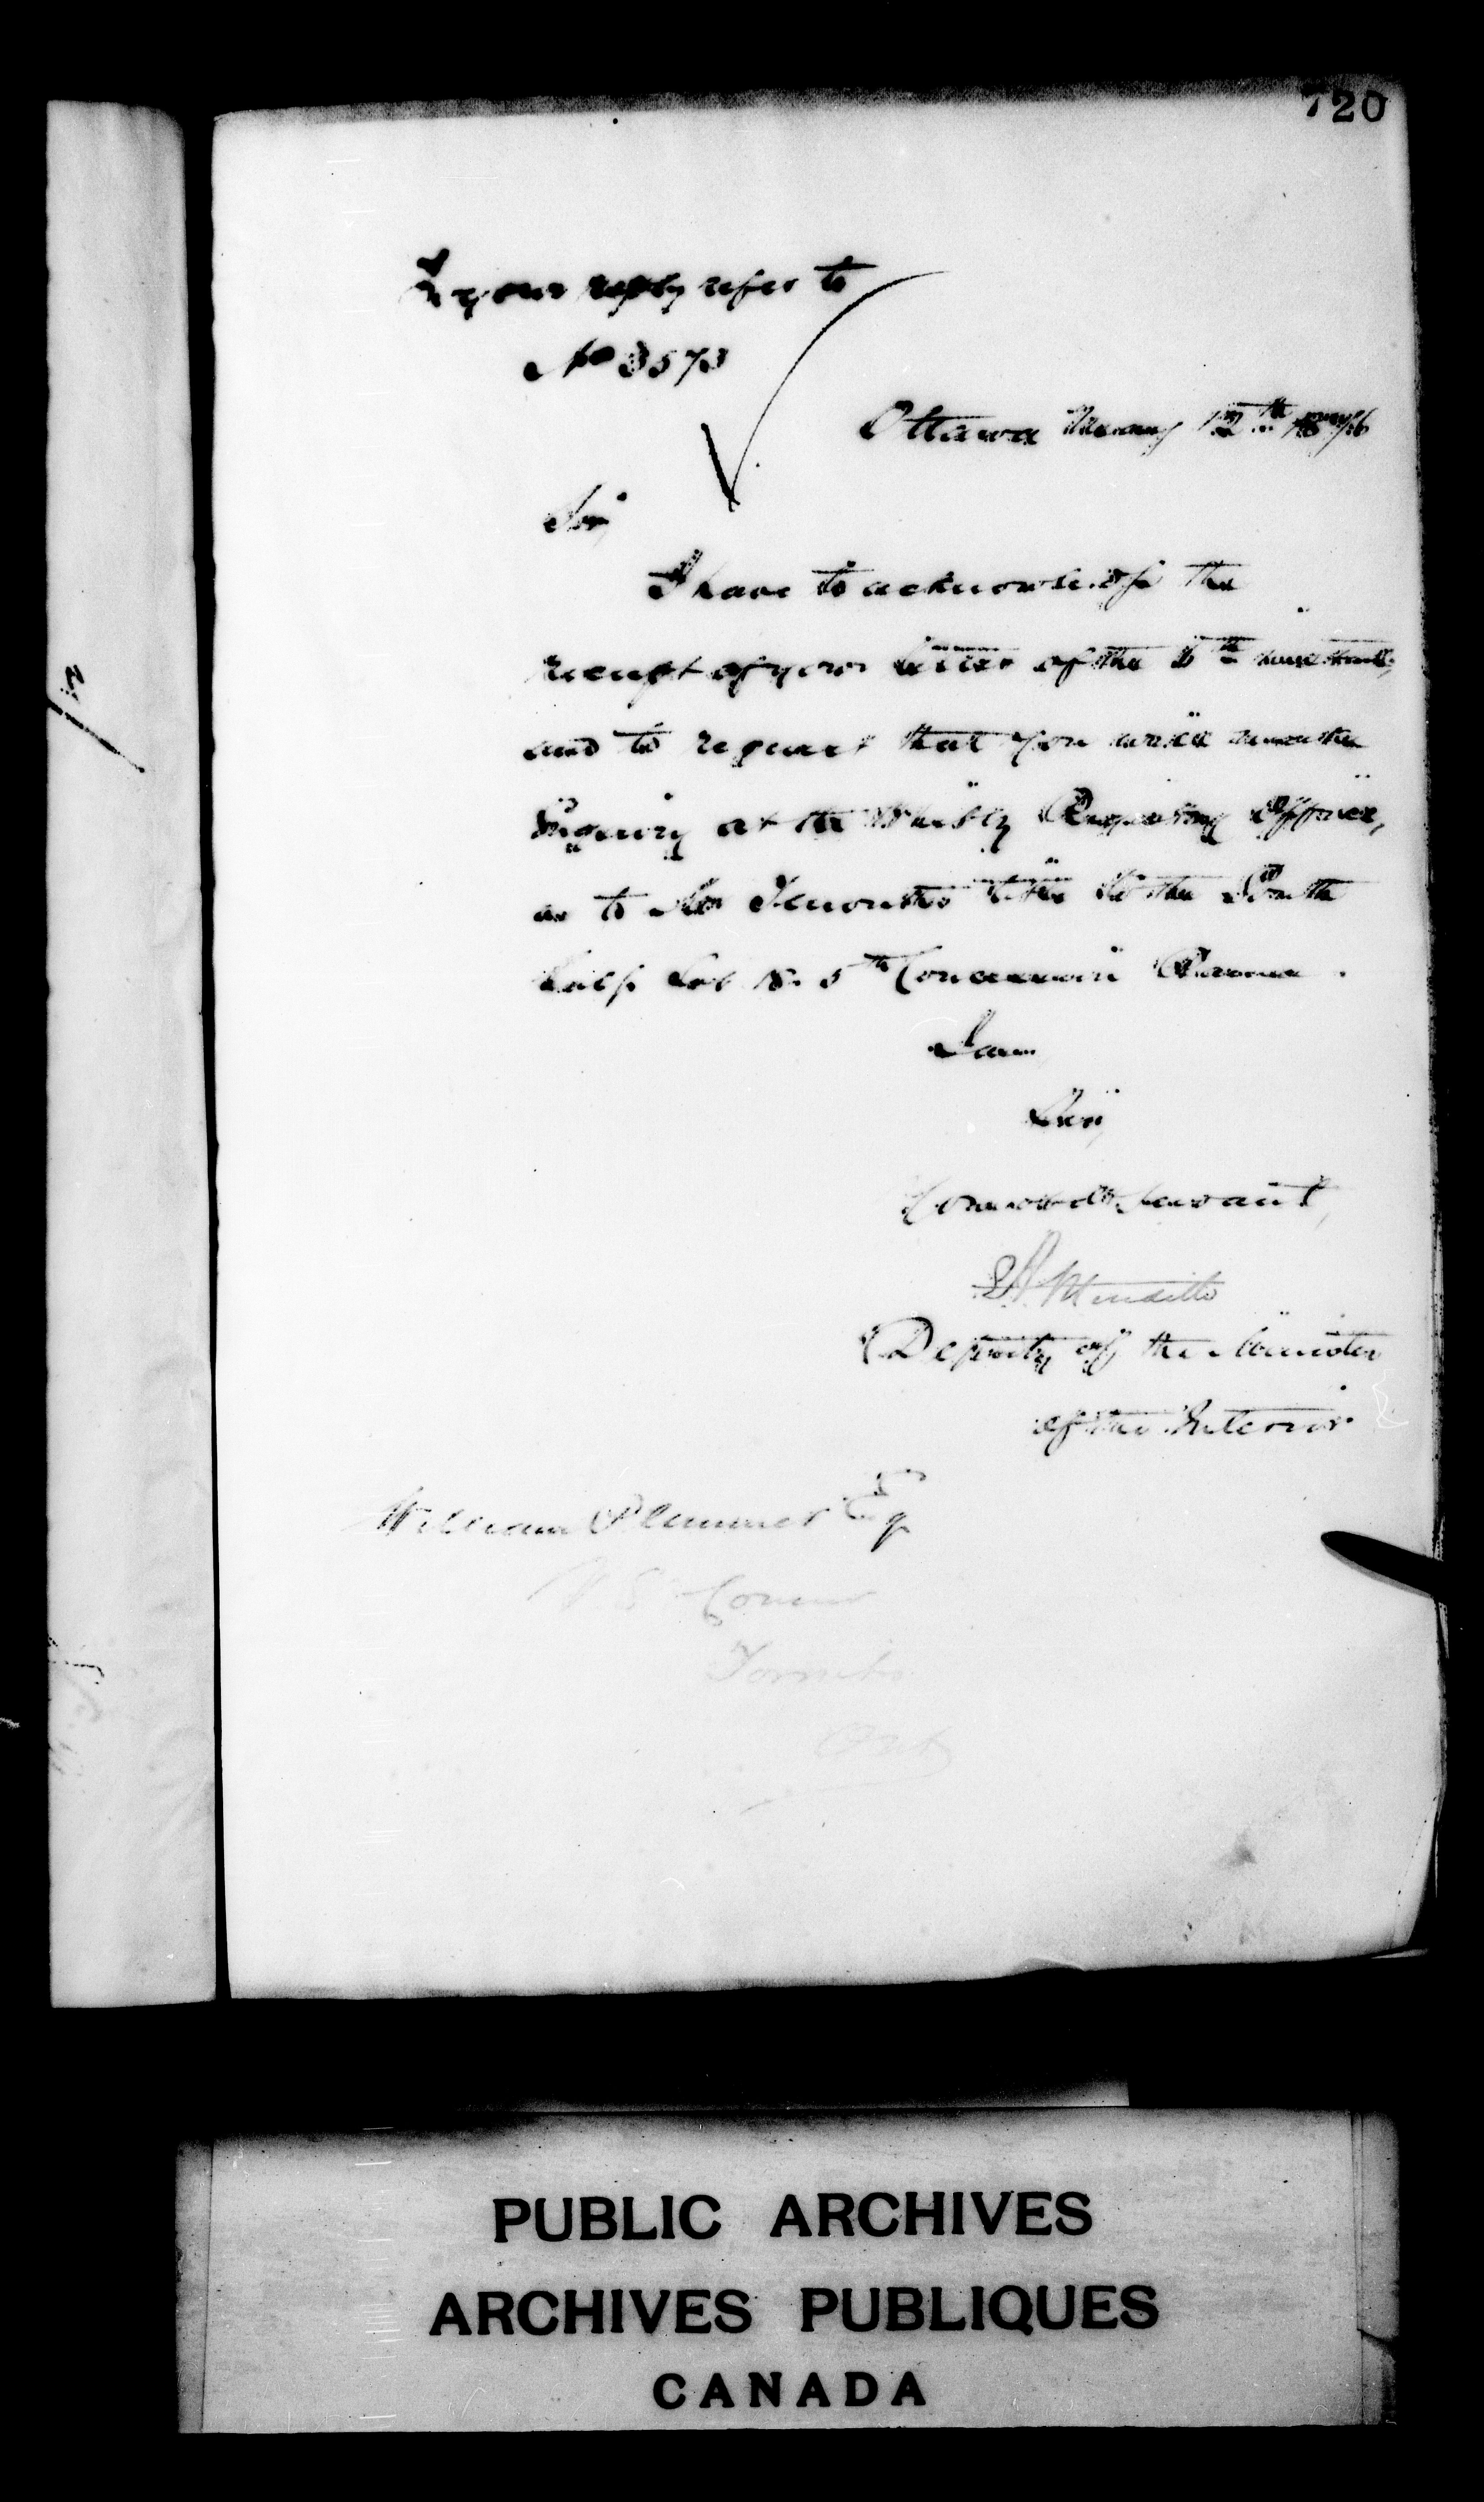 720
In your reply refer to
No 3573
Ottawa 12th 1876
Sir,
I have to acknowledge the
receipt of your letter of the
and to request that you will
Inquiry at the Registry Office,
as to title to the South
half Lot 18. 5th Concession
I am
Sir,
Your obdt. Servant,
Deputy of the Minister
of the Interior
William Plummer Esq
Toronto
Ont
PUBLIC ARCHIVES
ARCHIVES PUBLIQUES
CANADA